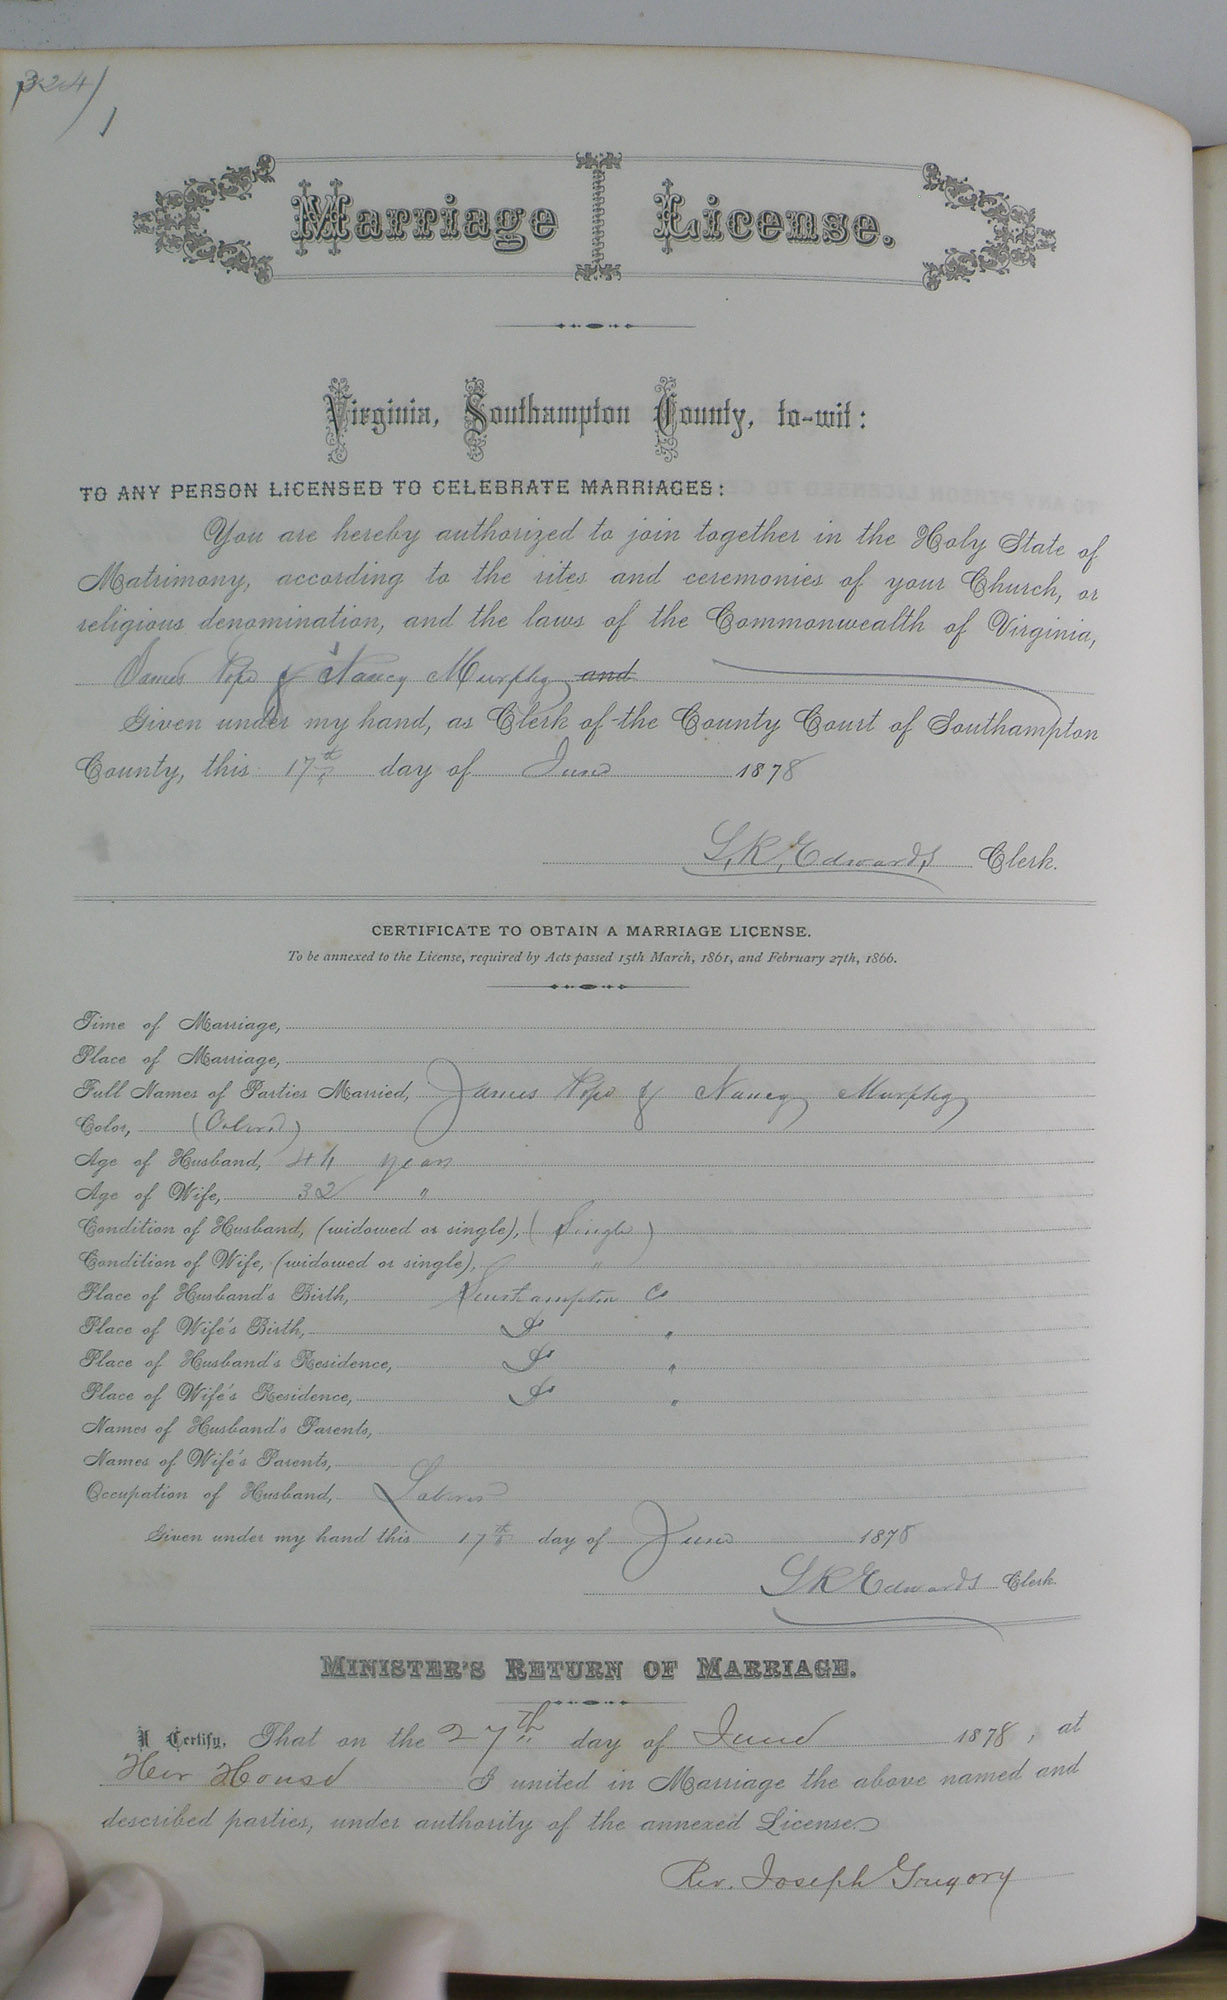 324/1
Marriage License.
Virginia, Southampton County, to-wit:
TO ANY PERSON LICENSED TO CELEBRATE MARRIAGES:
You are hereby authorized to join together in the Holy State of
Matrimony, according to the rites and ceremonies of your Church, or
religious denomination, and the laws of the Commonwealth of Virginia,
James Pope & Nancy Murphy and
Given under my hand, as Clerk of the County Court of Southampton
County, this 17th day of June 1878
L. R. Edwards Clerk.
CERTIFICATE TO OBTAIN A MARRIAGE LICENSE.
To be annexed to the License, required by Acts passed 15th March, 1861, and February 27th, 1866.
Time of Marriage,
Place of Marriage,
Full Names of Parties Married, James Pope & Nancy Murphy
Color, (Colored)
Age of Husband, 44 years
Age of Wife, 32 "
Condition of Husband, (widowed or single), (Single)
Condition of Wife, (widowed or single), "
Place of Husband's Birth, Southampton Co
Place of Wife's Birth, Do "
Place of Husband's Residence, Do "
Place of Wife's Residence, Do "
Names of Husband's Parents,
Names of Wife's Parents,
Occupation of Husband, Laborer
Given under my hand this 17th day of June 1878
L R Edwards Clerk.
MINISTER'S RETURN OF MARRIAGE.
I Certify, That on the 27th day of June 1878, at
Her House I united in Marriage the above named and
described parties, under authority of the annexed License.
Rev. Joseph Gregory